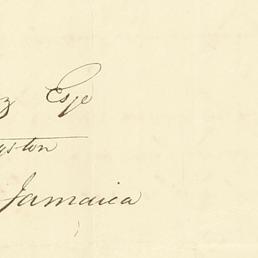 z Esqe
gston
Jamaica